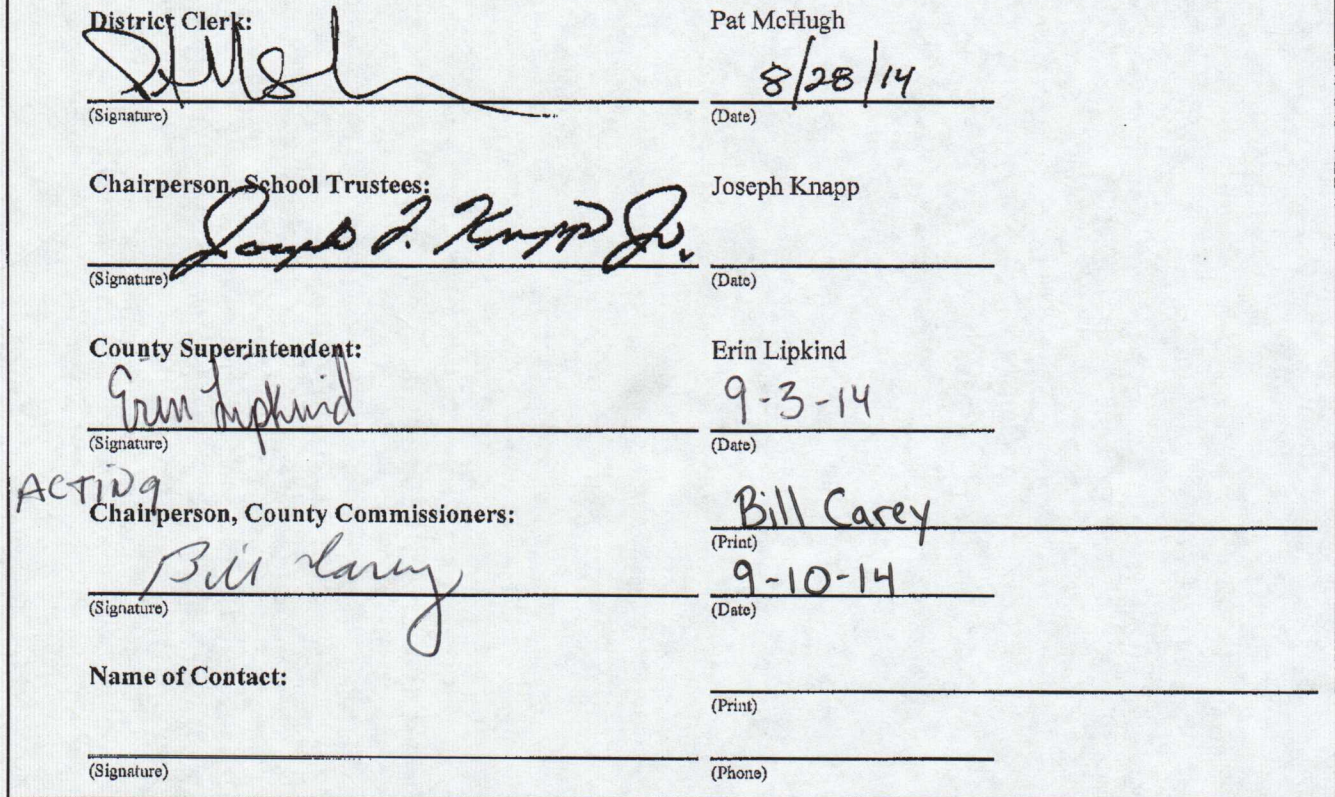 District Clerk: Pat McHugh
8/28/14
(Signature) (Date)
Chairperson, School Trustees: Joseph Knapp
Joseph I. Knapp Jr.
(Signature) (Date)
County Superintendent: Erin Lipkind
Erin Lipkind 9-3-14
(Signature) (Date)
ACTING
Chairperson, County Commissioners: Bill Carey
(Print)
Bill Carey 9-10-14
(Signature) (Date)
Name of Contact:
(Print)
(Signature) (Phone)